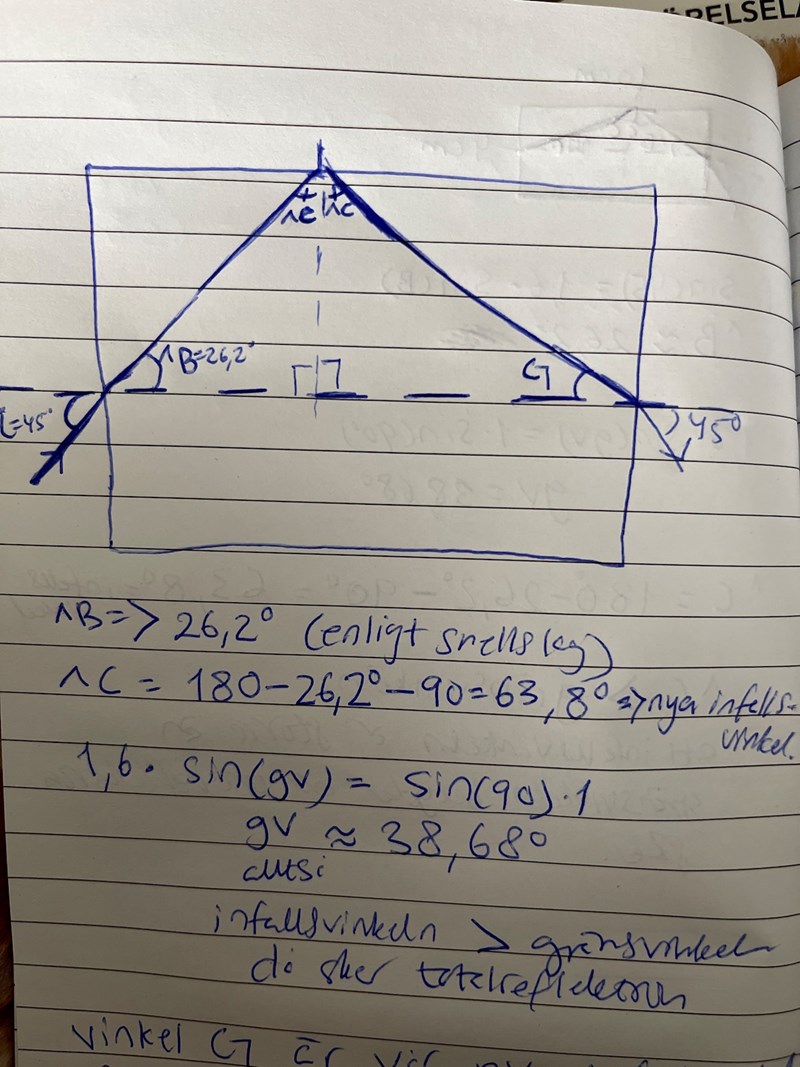 RELSELA
^C ^C
^B=26,2°
G
i=45°
45°
^B=> 26,2° (enligt snells lag)
^C = 180-26,2°-90=63,8° => nya infalls-
vinkel.
1,6 · sin(gv) = sin(90)·1
gv ≈ 38,68°
alltså
infallsvinkeln > gränsvinkeln
då sker totalreflektion
vinkel G är vår